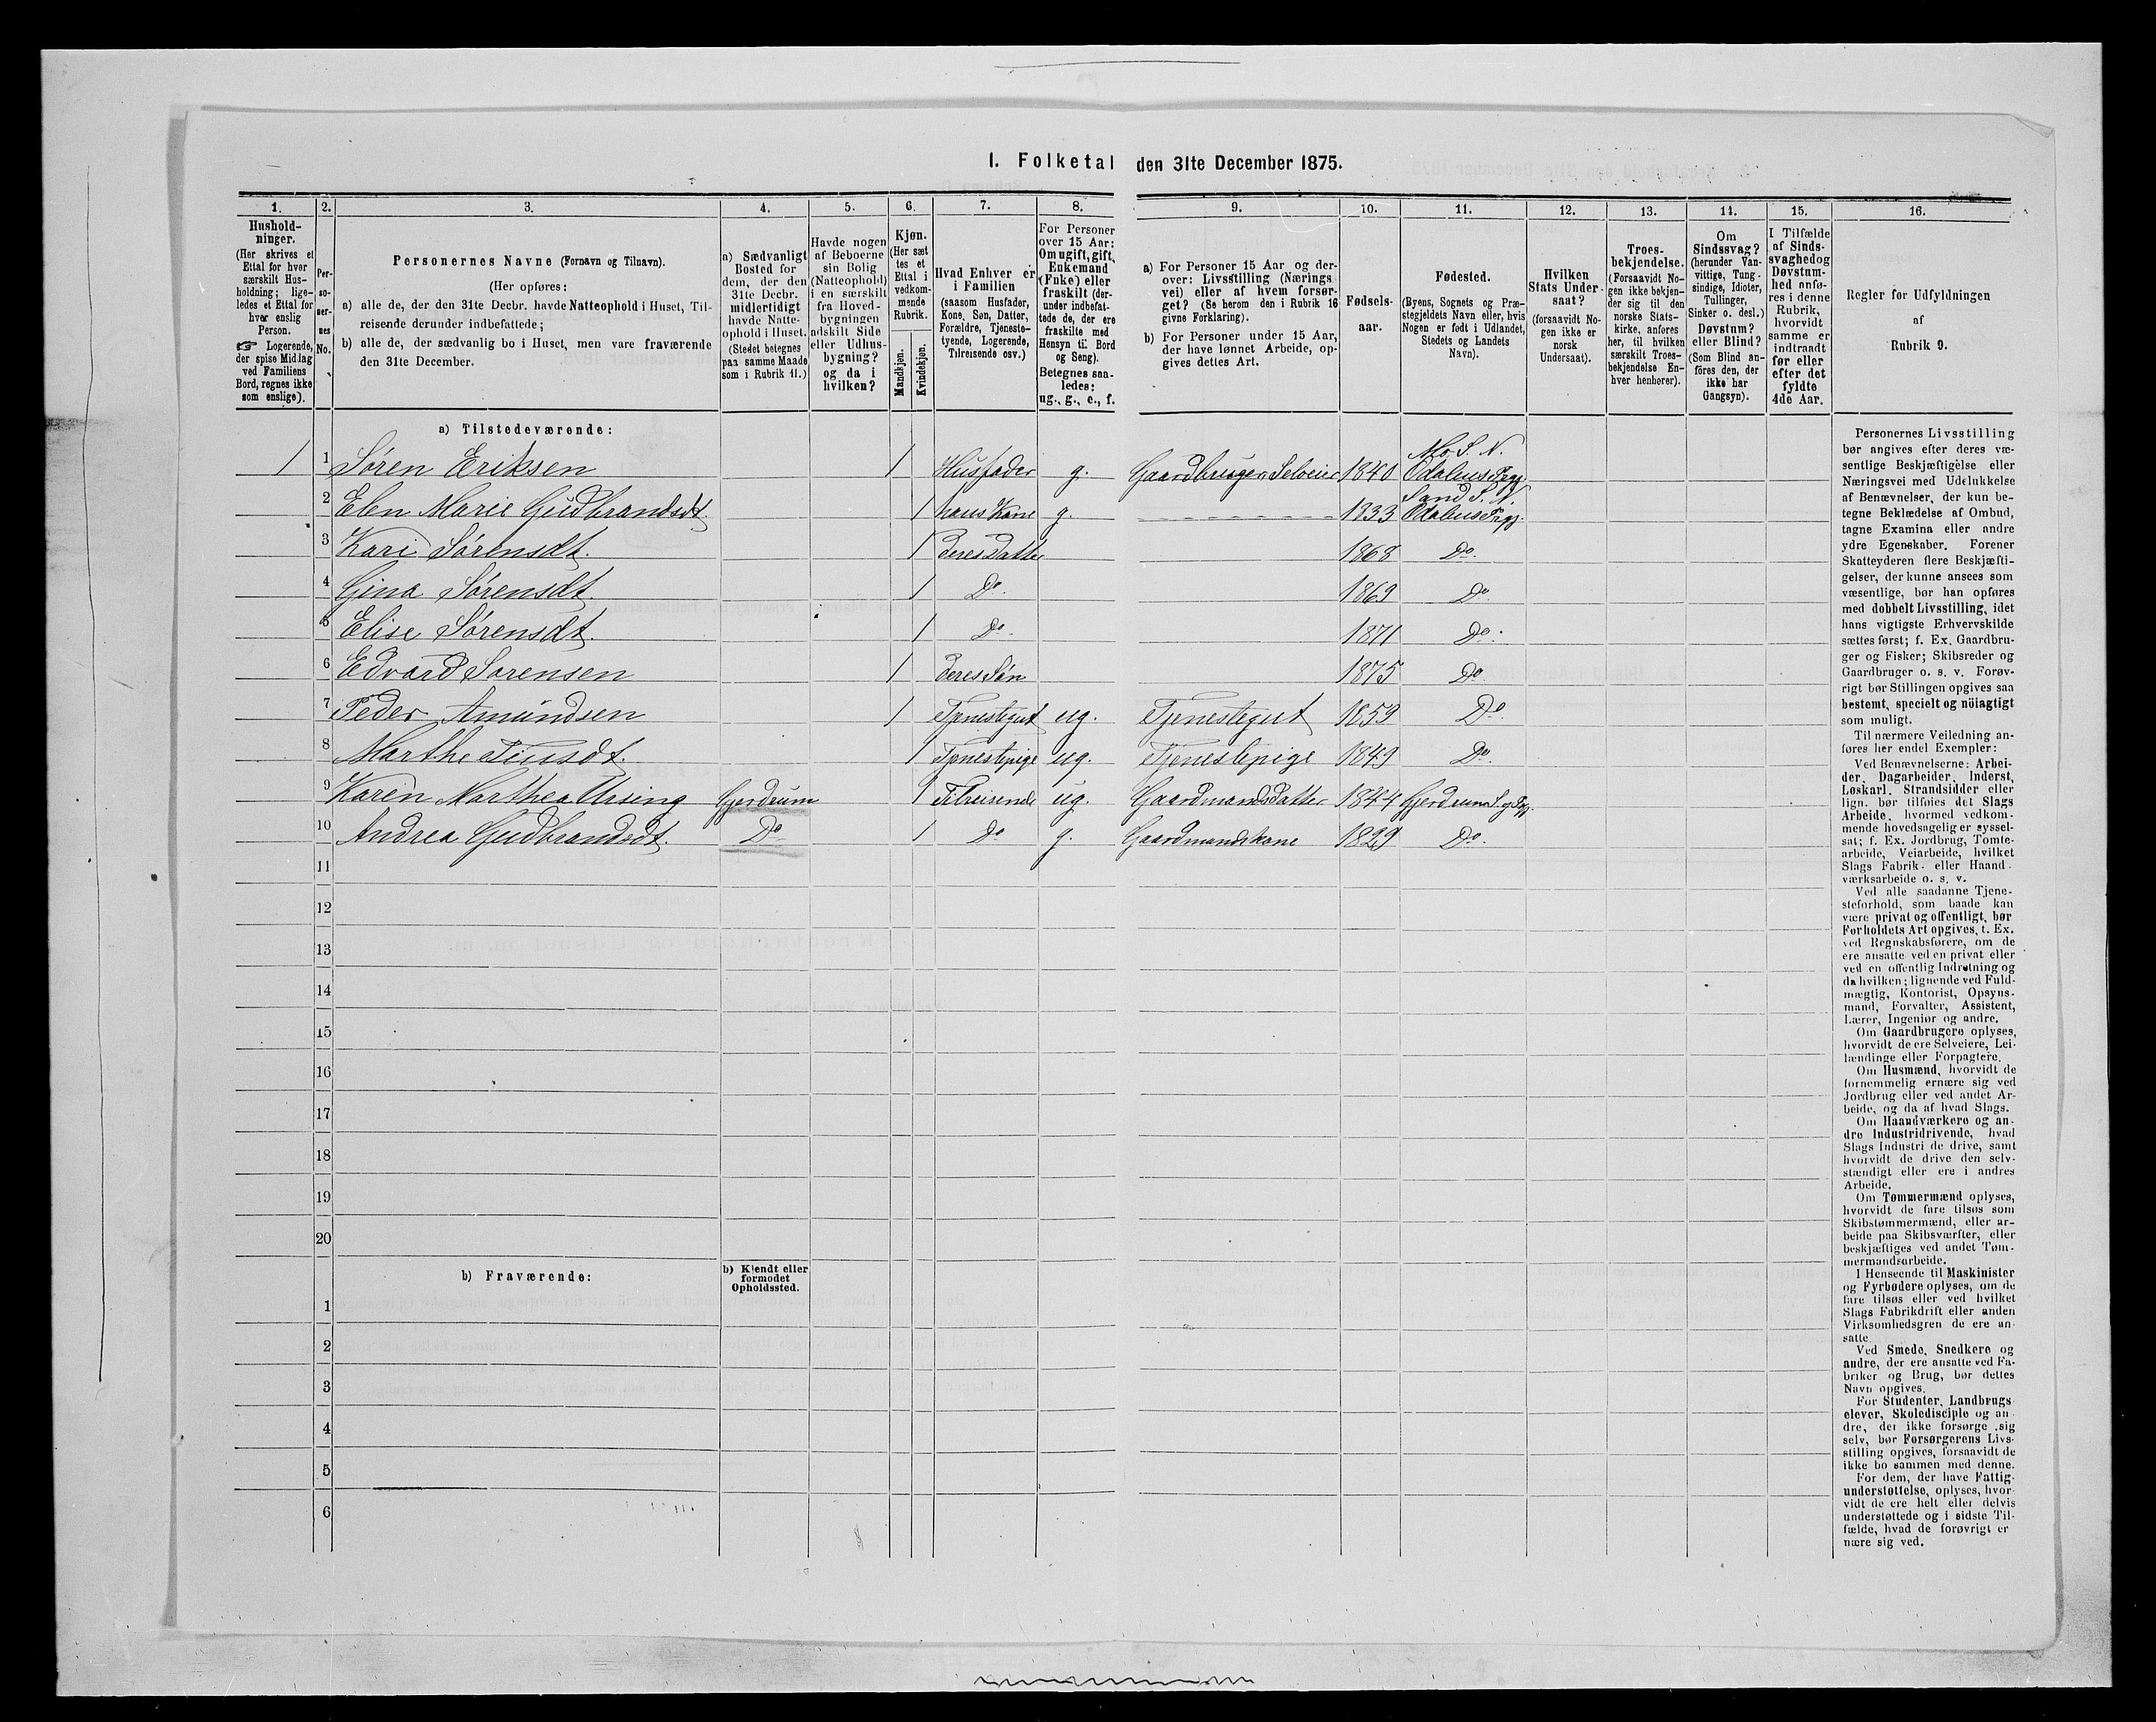 I. Folketal den 31te December 1875.
1. 2. 3. 4. 5. 6. 7. 8. 9. 10. 11. 12. 13. 14. 15. 16.
Hushold-
ninger.
(Her skrives et
Ettal for hver
særskilt Hus-
holdning; lige-
ledes et Ettal for
hver enslig
Person.
☞ Logerende,
der spise Middag
ved Familiens
Bord, regnes ikke
som enslige).
Per-
so-
ner-
nes
No.
Personernes Navne (Fornavn og Tilnavn).
(Her opføres:
a) alle de, der den 31te Decbr. havde Natteophold i Huset, Til-
reisende derunder indbefattede;
b) alle de, der sædvanlig bo i Huset, men vare fraværende
den 31te December.
a) Sædvanligt
Bosted for
dem, der den
31te Decbr.
midlertidigt
havde Natte-
ophold i Huset.
(Stedet betegnes
paa samme Maade
som i Rubrik 11.)
Havde nogen
af Beboerne
sin Bolig
(Natteophold)
i en særskilt
fra Hoved-
bygningen
adskilt Side
eller Udhus-
bygning?
og da i
hvilken?
Kjøn.
(Her sæt
tes et
Ettal i
vedkom-
mende
Rubrik.
Mandkjøn.
Kvindekjøn.
Hvad Enhver er
i Familien
(saasom Husfader,
Kone, Søn, Datter,
Forældre, Tjeneste-
tyende, Logerende,
Tilreisende osv.)
For Personer
over 15 Aar:
Om ugift, gift,
Enkemand
(Enke) eller
fraskilt (der-
under indbefat-
tede de, der ere
fraskilte med
Hensyn til Bord
og Seng).
Betegnes saa-
ledes:
ug., g., e., f.
a) For Personer 15 Aar og der-
over: Livsstilling (Nærings
vei) eller af hvem forsør-
get? (Se herom den i Rubrik 16
givne Forklaring).
b) For Personer under 15 Aar,
der have lønnet Arbeide, op-
gives dettes Art.
Fødsels-
aar.
Fødested.
(Byens, Sognets og Præ-
stegjeldets Navn eller, hvis
Nogen er født i Udlandet,
Stedets og Landets
Navn).
Hvilken
Stats Under-
saat?
(forsaavidt No-
gen ikke er
norsk
Undersaat).
Troes-
bekjendelse.
(Forsaavidt No-
gen ikke bekjen-
der sig til den
norske Stats-
kirke, anføres
her, til hvilken
særskilt Troes-
bekjendelse En-
hver henhører).
Om
Sindssvag?
(herunder Van-
vittige, Tung-
sindige, Idioter,
Tullinger,
Sinker o. desl.)
Døvstum?
eller Blind?
(Som Blind an-
föres den, der
ikke har
Gangsyn).
I Tilfælde
af Sinds-
svaghed og
Døvstum-
hed anfø-
res i denne
Rubrik,
hvorvidt
samme er
indtraadt
før eller
efter det
fyldte
4de Aar.
Regler for Udfyldningen
af
Rubrik 9.
a) Tilstedeværende:
1 1 Søren Eriksen 1 Husfader g. Gaardbruger, Selveier 1840 Mo S. N. Odalens Prgj.
2 Elen Marie Gudbrandsdt. 1 hans Kone g. 1833 Sand S. N. Odalens Prgj.
3 Kari Sørensdt. 1 Deres Datter 1868 Do.
4 Gina Sørensdt. 1 Do. 1869 Do.
5 Elise Sørensdt. 1 Do. 1871 Do.
6 Edvard Sørensen 1 Deres Søn 1875 Do.
7 Peder Amundsen 1 Tjenestegut ug. Tjenestegut 1859 Do.
8 Marthe 1 Tjenestepige ug. Tjenestepige 1849 Do.
9 Karen Marthea Ursing Gjerdrum 1 Tilreisende ug. Gaardmands Datter 1844 Gjerdrum S. og Pgj.
10 Andrea Gudbrandsdt. Do 1 Do g. Gaardmandskone 1829 Do.
11
12
13
14
15
16
17
18
19
20
b) Fraværende:
b) Kjendt eller
formodet
Opholdssted.
1
2
3
4
5
6
Personernes Livsstilling
bør angives efter deres væ-
sentlige Beskjæftigelse eller
Næringsvei med Udelukkelse
af Benævnelser, der kun be-
tegne Beklædelse af Ombud,
tagne Examina eller andre
ydre Egenskaber. Forener
Skatteyderen flere Beskjæfti-
gelser, der kunne ansees som
væsentlige, bør han opføres
med dobbelt Livsstilling, idet
hans vigtigste Erhvervskilde
sættes først; f. Ex. Gaardbru-
ger og Fisker; Skibsreder og
Gaardbruger o. s. v. Forøv-
rigt bør Stillingen opgives saa
bestemt, specielt og nöiagtigt
som muligt.
Til nærmere Veiledning an-
føres her endel Exempler:
Ved Benævnelserne: Arbei-
der, Dagarbeider, Inderst,
Løskarl, Strandsidder eller
lign. bør tilføies det Slags
Arbeide, hvormed vedkom-
mende hovedsagelig er syssel-
sat; f. Ex. Jordbrug, Tomte-
arbeide, Veiarbeide, hvilket
Slags Fabrik- eller Haand-
værksarbeide o. s. v.
Ved alle saadanne Tjene-
steforhold, som baade kan
være privat og offentligt, bør
Forholdets Art opgives, t. Ex.
ved Regnskabsførere, om de
ere ansatte ved en privat eller
ved en offentlig Indretning og
da hvilken; lignende ved Fuld-
mægtig, Kontorist, Opsyns-
mand, Forvalter, Assistent,
Lærer, Ingeniør og andre.
Om Gaardbrugere oplyses,
hvorvidt de ere Selveiere, Lei-
lændinge eller Forpagtere.
Om Husmænd, hvorvidt de
fornemmelig ernære sig ved
Jordbrug eller ved andet Ar-
beide, og da af hvad Slags.
Om Haandværkere og an-
dre Industridrivende, hvad
Slags Industri de drive, samt
hvorvidt de drive den selv-
stændigt eller ere i andres
Arbeide.
Om Tømmermænd oplyses,
hvorvidt de fare tilsøs som
Skibstømmermænd, eller ar-
beide paa Skibsværfter, eller
beskjæftiges ved andet Tøm-
mermandsarbeide.
I Henseende til Maskinister
og Fyrbødere oplyses, om de
fare tilsøs eller ved hvilket
Slags Fabrikdrift eller anden
Virksomhedsgren de ere an-
satte.
Ved Smede, Snedkere og
andre, der ere ansatte ved Fa-
briker og Brug, bør dettes
Navn opgives.
For Studenter, Landbrugs-
elever, Skoledisciple og an-
dre, der ikke forsørge sig
selv, bør Forsørgerens Livs-
stilling opgives, forsaavidt de
ikke bo sammen med denne.
For dem, der have Fattig-
understøttelse, oplyses, hvor-
vidt de ere helt eller delvis
understøttede og i sidste Til-
fælde, hvad de forøvrigt er
nære sig ved.